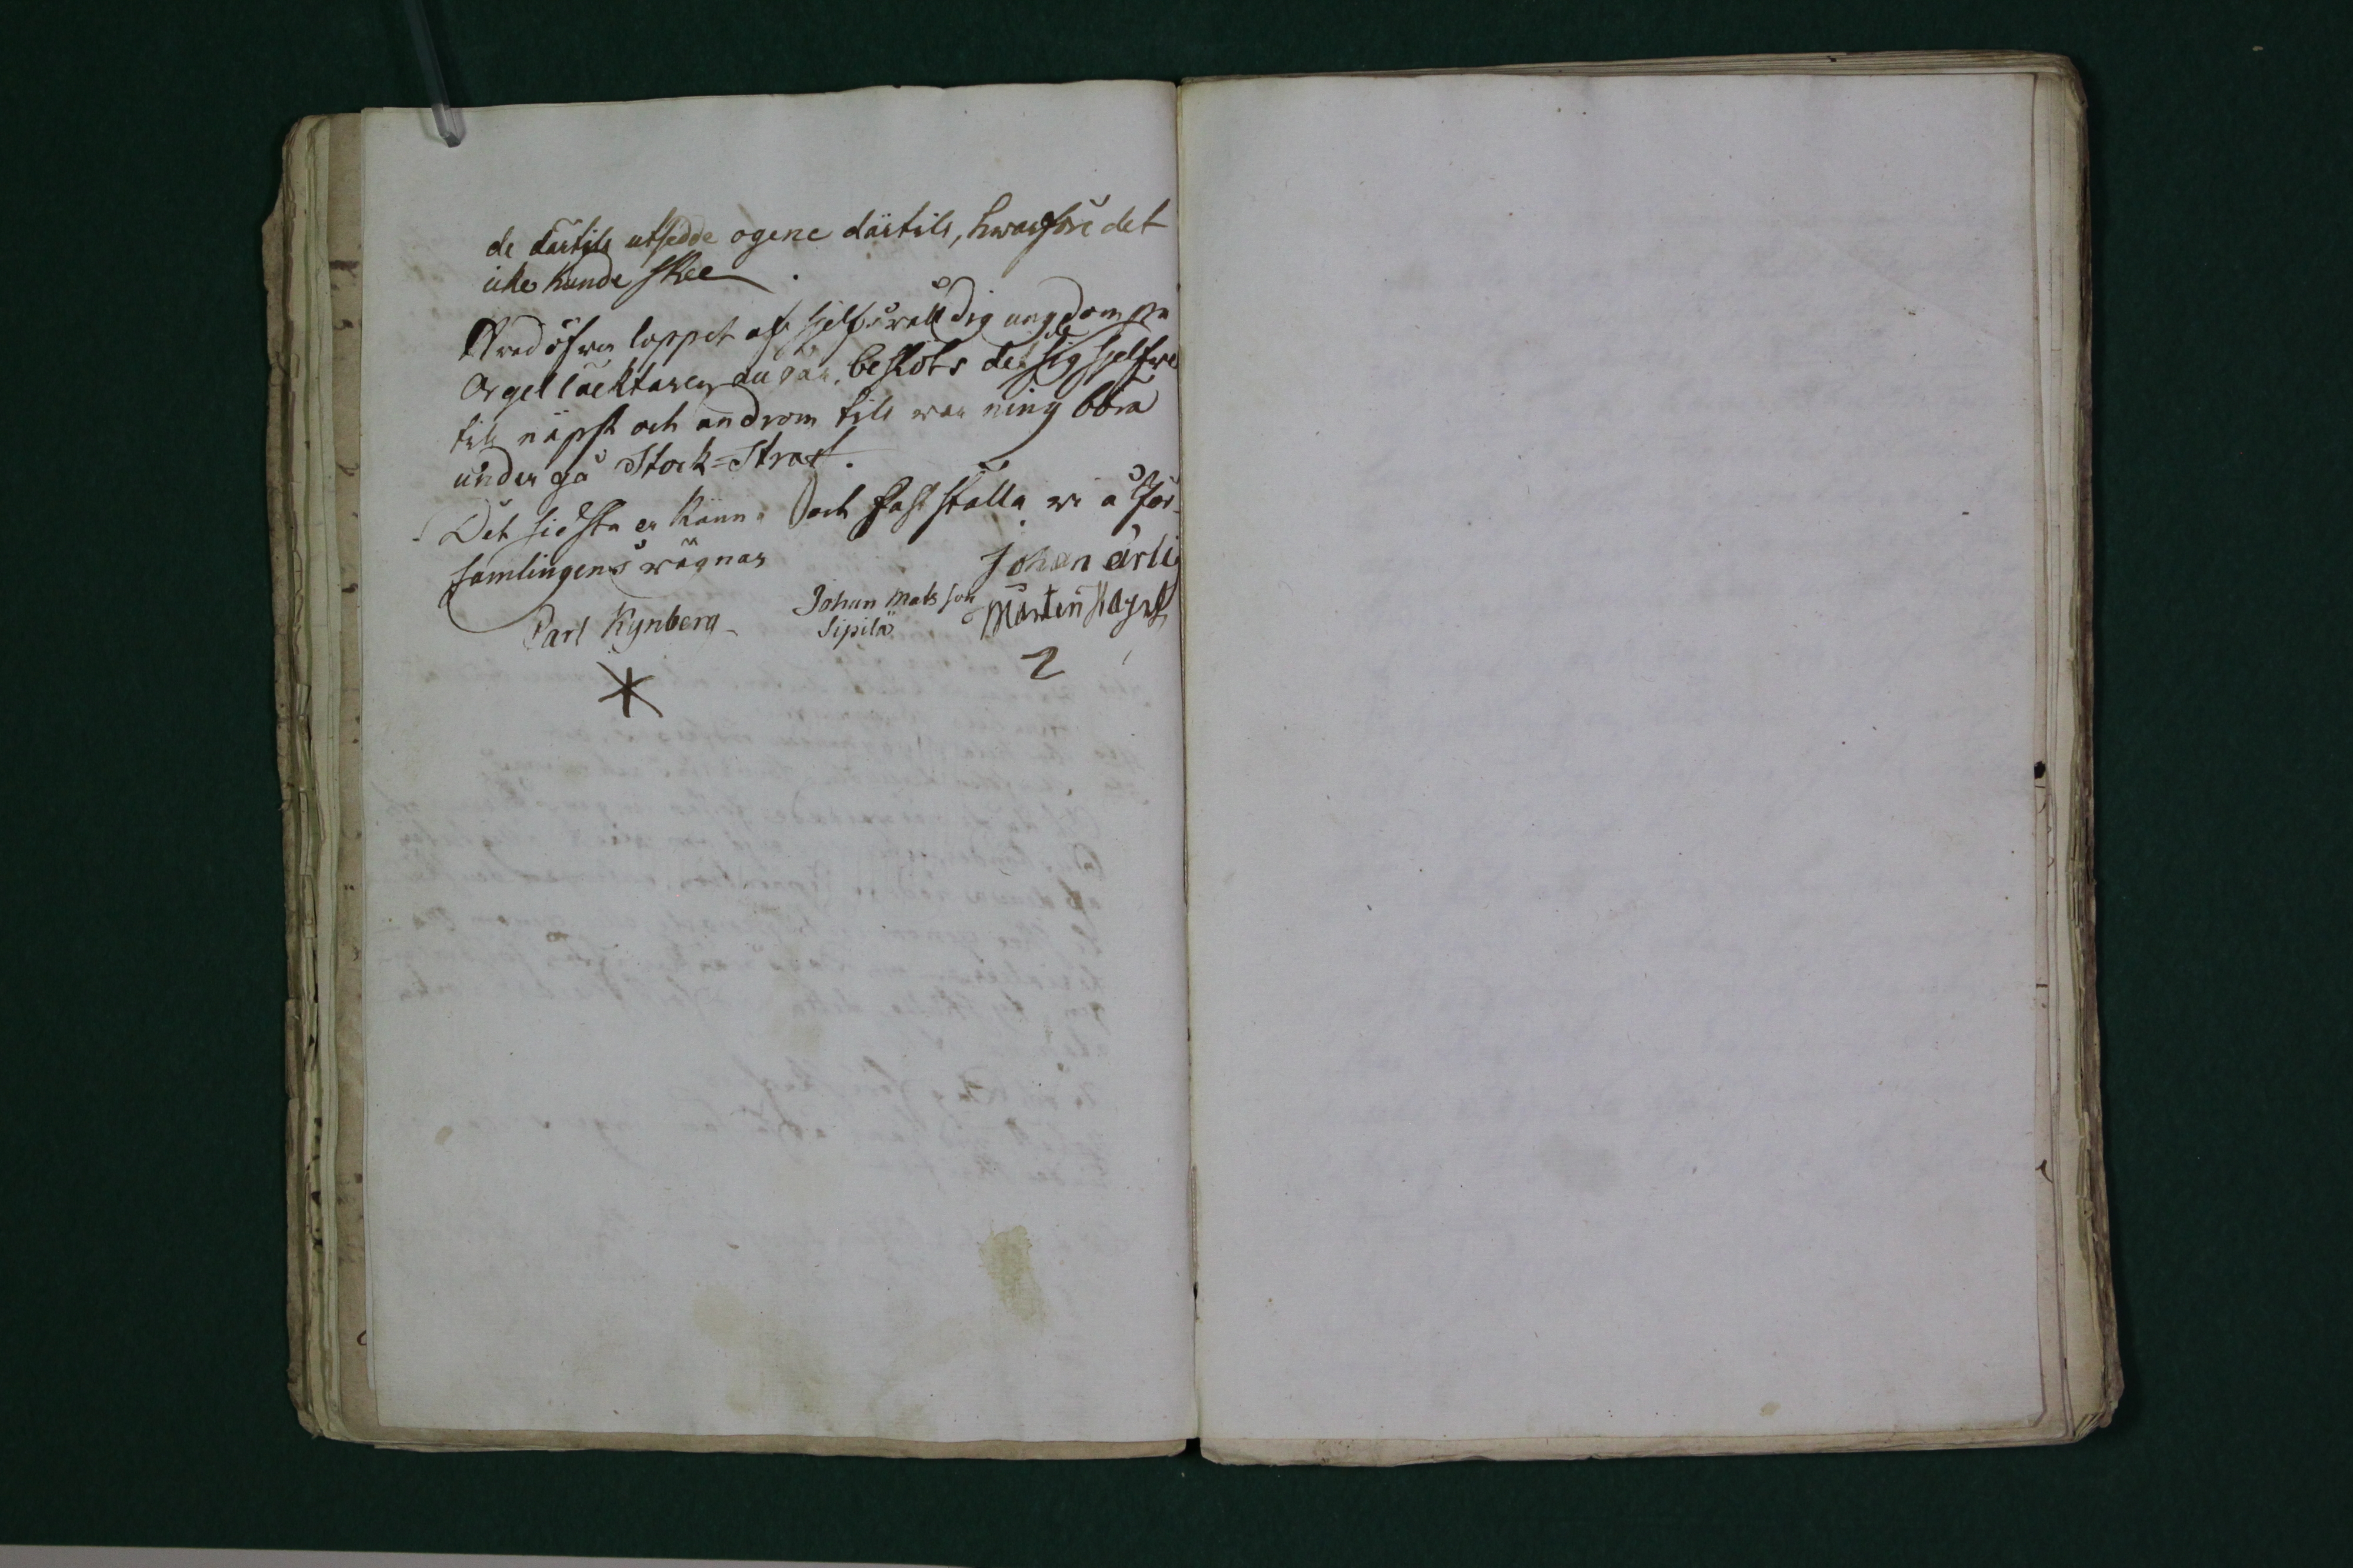 de därtils utsedde ogene därtils, hwarföre det
icke kunde skee.
Hvad öfver loppet af sjelfswåldig ungdom på
Orgel läcktaren angår, beslöts det de sig sjelfve
tils näpst och androm tils warning böra
undergå Stock-Straf.
Det sidsta erkänna och fastställa vi å För-
samlingens wägnar
Johan ärli
Carl Rynberg Johan Matsson Mårten
Sipilä
2